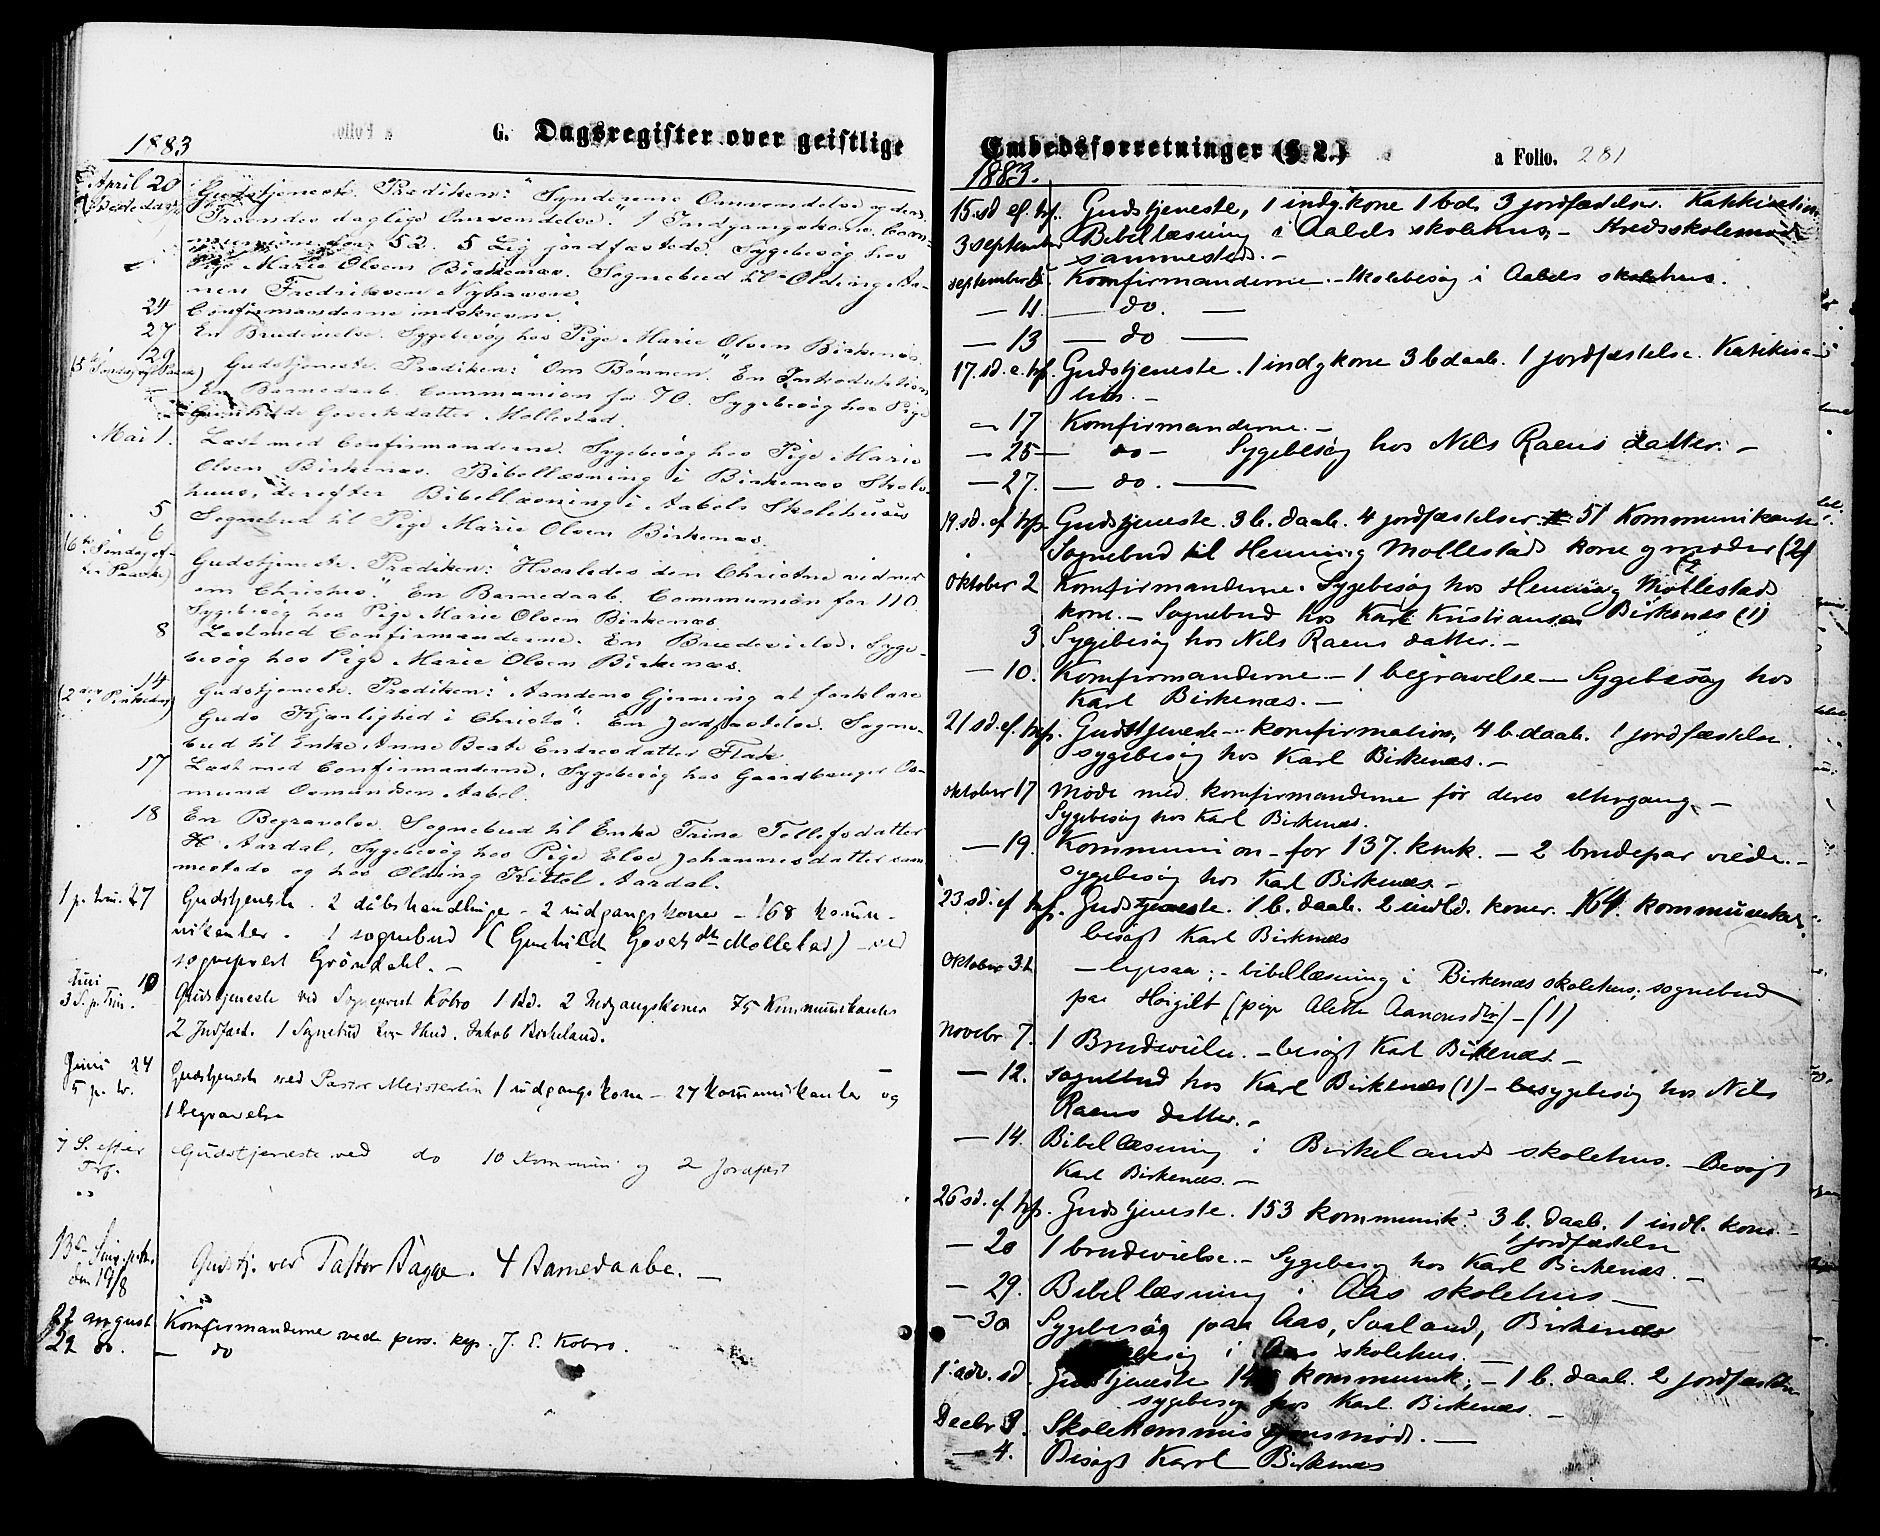 G. Dagsregister over geistlige
1883
April 20 Gudstjeneste. Prædiken: "Synderens Omvendelse og den
Bededag Troendes daglige Omvendelse." 1 Indgangskone. Com-
munion for 52. 5 Lig jordfæstede. Sygebesøg hos
Pige Marie Olsen Birkenæs. Sognebud til Olding Aa-
nen Fredriksen Nyhaven.
24 Confirmanderne indskrevne.
27 En Brudevielse. Sygebesøg hos Pige Marie Olsen Birkenæs.
29 Gudstjeneste. Prædiken: "Om Bønnen." En Introduktion
(5te Søndag ef. Paaske) En Barnedaab. Communion for 70. Sygebesøg hos Pige
Gunhilde Govertsdatter Mollestad.
Mai 1. Læst med Confirmanderne. Sygebesøg hos Pige Marie
Olsen Birkenæs. Bibellæsning i Birkenæs Skole-
huus, derefter Bibellæsning i Aabels Skolehuus
5 Sognebud til Pige Marie Olsen Birkenæs.
6 Gudstjeneste. Prædiken: "Hvorledes den Christne vidner
(6te Søndag ef-
ter Paaske) om Christus." En Barnedaab. Communion for 110.
Sygebesøg hos Pige Marie Olsen Birkenæs
8 Læst med Confirmanderne. En Brudevielse. Syge-
besøg hos Pige Marie Olsen Birkenæs.
14 Gudstjeneste. Prædiken: "Aandens Gjerning at forklare
(2den Pintsedag) Guds Kjærlighed i Christo". En Jordfæstelse. Sogne-
bud til Enke Anne Beate Endresdatter Flak.
17 Læst med Confirmanderne. Sygebesøg hos Gaardbruger Os-
mund Osmundsen Aabel.
18 En Begravelse. Sognebud til Enke Trine Tellefsdatter
Aardal, Sygebesøg hos Pige Else Johannesdatter sam-
mesteds og hos Olding Kittel Aardal.
1 p. trin. 27 Gudstjeneste. 2 dåbshandlinge - 2 indgangskoner - 168 kommu-
nikanter. 1 sognebud (Gunhild Goverts dtr Mollestad) - ved
sogneprest Grøndahl. -
Juni 10
3 S. p. Trin. Gudstjeneste ved Sogneprest Kobro 1 Bd. 2 Indgangskoner 75 Kommunikanter
2 Jordfæst. 1 Sognebud Jakob Birkeland.
Juni 24
5 p. tr. Gudstjeneste ved Pastor Meisterlin 1 indgangskone - 27 kommunikanter og
1 begravelse
7 S. efter
Trf. Gudstjeneste ved do 10 Kommuni og 2 Jordfæst
13de Søn. p. tr.
den 19/8 Gudstj. ved Pastor Bagge. 4 Barnedaabe. -
27 august Komfirmanderne ved pers. kap. J. E. Kobro.
29 do. - do
Embedsforretninger (§ 2.)
a Folio. 281
1883.
15. sd ef. trf. Gudstjeneste, 1 indg.kone 1 bd. 3 jordfæstelser. Katekisation
3 september Bibellæsning i Aabels skolehus - Kredsskolemøde
sammesteds. -
september Komfirmanderne - Skolebesøg i Aabels skolehus.
- 11 - do. -
- 13 - do -
17. sd. e. trf. Gudstjeneste. 1 indg kone 3 b daab. 1 jordfæstelse. Katekisa-
tion. -
- 17 Komfirmanderne. -
- 25 - do - Sygebesøg hos Nils Raens datter. -
- 27. - do. -
19. sd. ef. trf. Gudstjeneste. 3 b. daab. 4 jordfæstelser. 51 Kommunikanter
Sognebud til Henning Mollestads kone og moder (2)
Oktober 2 Komfirmanderne. Sygebesøg hos Henning Mollestads
kone. - Sognebud hos Karl Kristiansen Birkenæs (1)
3. Sygebesøg hos Nils Raens datter. -
- 10. Komfirmanderne - 1 begravelse - Sygebesøg hos
Karl Birkenæs. -
21 sd. ef. trf. Gudstjeneste - komfirmation, 4 b. daab. 1 jordfæstelse.
sygebesøg hos Karl Birkenæs. -
oktober 17 Møde med komfirmanderne før deres altergang -
Sygebesøg hos Karl Birkenæs.
- 19. Kommunion - for 137. kmk. - 2 brudepar viede. -
sygebesøg hos Karl Birkenæs. -
23 sd. ef trf. Gudstjeneste. 1 b. daab. 2 indld. koner. 164. kommunikan.
besøgt Karl Birkenæs
Oktober 31. - ligesaa; - bibellæsning i Birkenæs skolehus; sognebud
paa Høigilt (pige Alette Aanonsdtr) - (1)
Novebr 7. 1 Brudevielse. - besøgt Karl Birkenæs. -
- 12. sognebud hos Karl Birkenæs (1) - sygebesøg hos Nils
Raens datter. -
- 14. Bibellæsning i Birkelands skolehus. - Besøgt
Karl Birkenæs. -
26 sd. ef. trf. Gudstjeneste. 153 kommunik. 3 b. daab. 1 indl. kone. -
1 jordfæstelse
- 20 1 brudevielse. - Sygebesøg hos Karl Birkenæs. -
- 29. Bibellæsning i Aas skolehus -
- 30 Sygebesøg paa Aas, Svaland, Birkenæs
i Aas skolehus. -
1. adv. sd. Gudstjeneste kommunik. - 1 b. daab. 2 jordfæstelser
sygebesøg hos Karl Birkenæs. -
Decbr 3. Skolekommissjonsmøde. -
- 4. Besøgt Karl Birkenæs